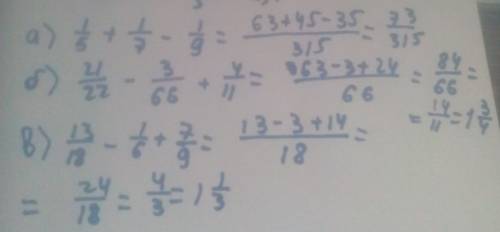 а) 1/5 + 1/7 - 1/9 = (63+45-35)/315 = 73/315
б) 21/22 - 3/66 + 4/11 = (63-3+24)/66 = 84/66 =
= 14/11 = 1 3/4
в) 13/18 - 1/6 + 7/9 = (13-3+14)/18 =
= 24/18 = 4/3 = 1 1/3